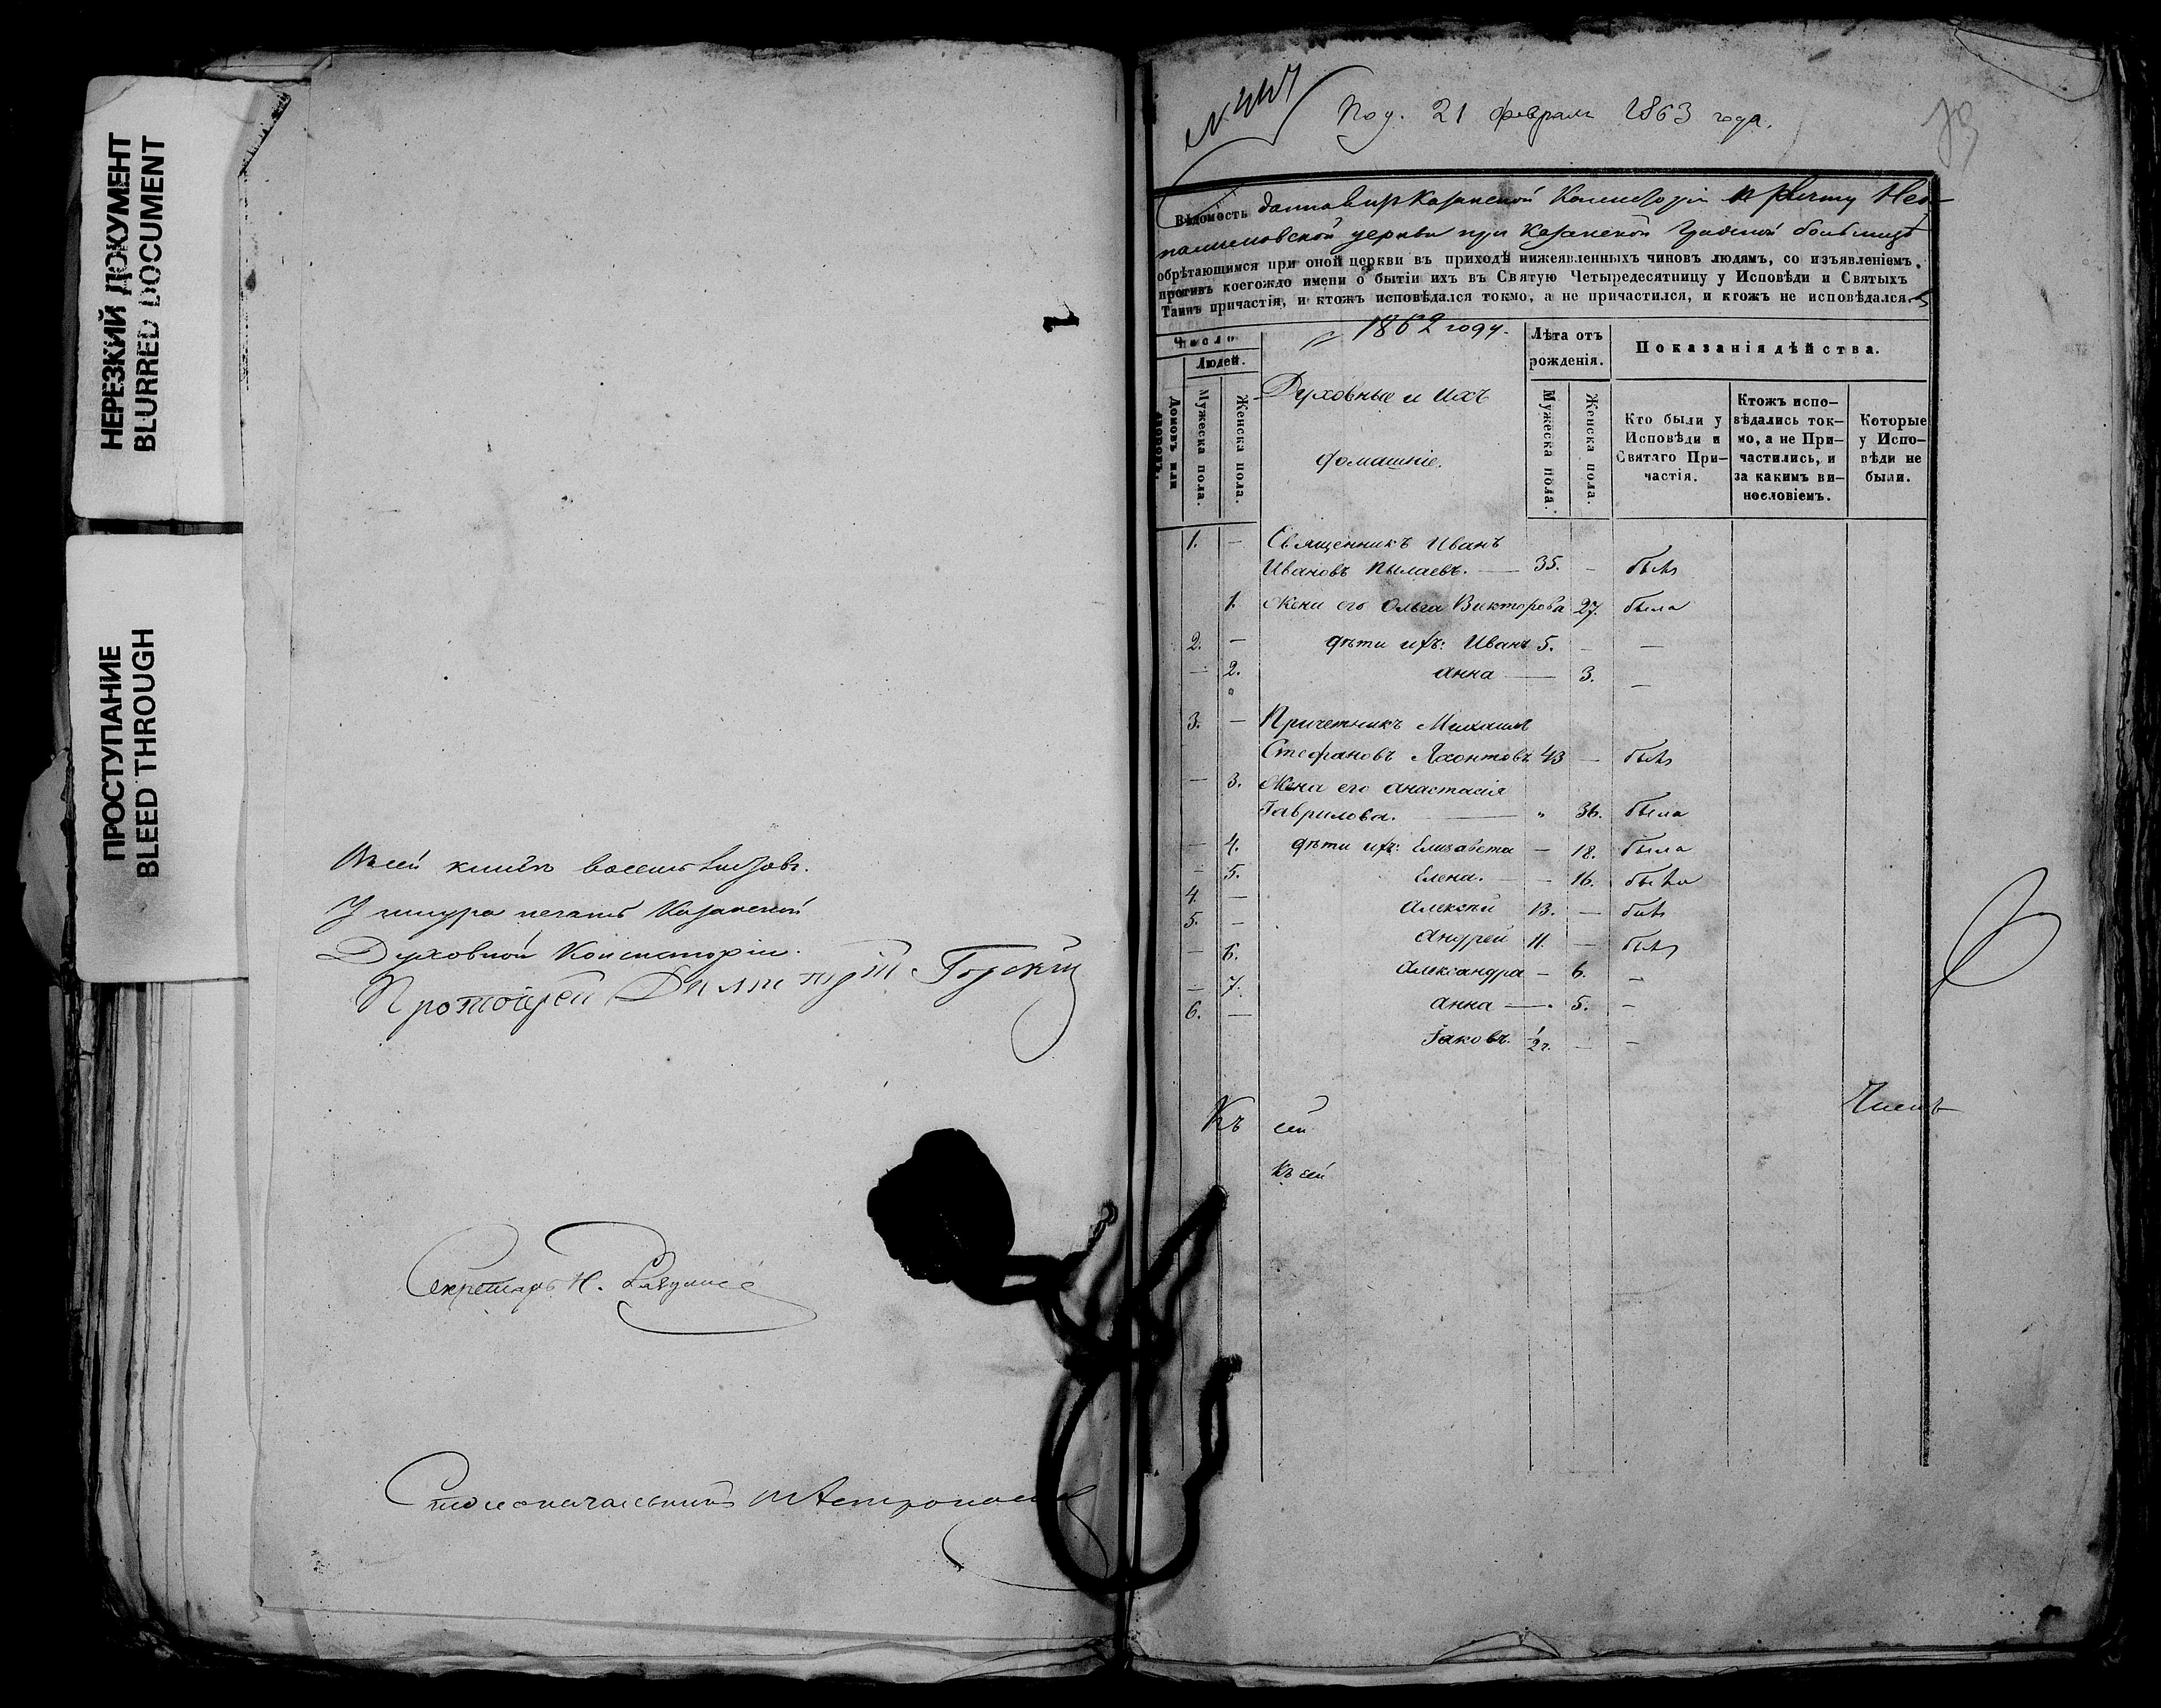 НЕРЕЗКИЙ ДОКУМЕНТ
BLURRED DOCUMENT
ПРОСТУПАНИЕ
BLEED THROUGH
Въ сей книгѣ восемь листовъ.
У шнура печать Казанской
Духовной Консисторіи.
Протоіерей
Секретарь Н.
Столоначальникъ
Под. 21 февраля 1863 года.
Вѣдомость данная изъ Казанской Консисторіи причту Нео-
палимовской церкви при Казанской Градской больницѣ
обрѣтающимся при оной церкви въ приходѣ нижеявленныхъ чиновъ людямъ, со изъявленіемъ,
противъ коегождо имени о бытіи ихъ въ Святую Четыредесятницу у Исповѣди и Святыхъ
Таинъ причастія, и ктожъ исповѣдался токмо, а не причастился, и ктожъ не исповѣдался. въ
1862 году.
Число
Людей.
Домовъ или
Мужеска пола.
Женска пола.
Духовные и ихъ
домашніе.
Лѣта отъ
рожденія.
Мужеска пола.
Женска пола.
Показанія дѣйства.
Кто были у
Исповѣди и
Святаго При-
частія.
Ктожъ испо-
вѣдались ток-
мо, а не При-
частились, и
за какимъ ви-
нословіемъ.
Которые
у Испо-
вѣди не
были.
1. — Священникъ Иванъ
Ивановъ Пылаевъ. — 35. — былъ
1. Жена его Ольга Викторова 27. была
2. — дѣти ихъ: Иванъ 5. — —
— 2. Анна — 3. —
3. — Причетникъ Михаилъ
Стефановъ Яхонтовъ 43 — былъ
— 3. Жена его Анастасія
Гаврилова. — " 36. была
— 4. дѣти ихъ: Елизавета — 18. была
— 5. Елена. — 16. была
4. — Алексѣй 13. — былъ
5. — Андрей 11. — былъ
— 6. Александра — 6. —
— 7. Анна — 5. —
6. — Іаковъ. 1/2 г. — —
Къ сей
Къ сей